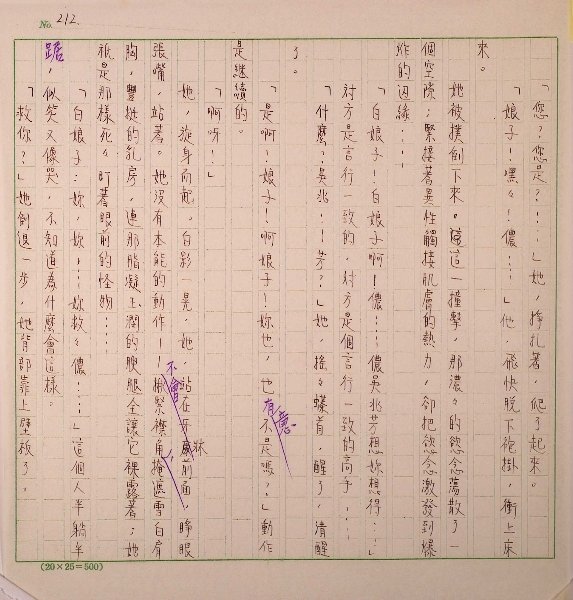 No. 212.
「您?您是?!……」她,掙扎着,爬了起來。
「娘子!嘿々!儂……」他,飛快脫下袍掛,衝上床
來。
她被撲倒下來。這一撞擊,那濃々的慾念蕩散了一
個空隙;緊接著異性觸摟肌膚的熱力,卻把慾念激發到爆
炸的邊緣……
「白娘子!白娘子啊!儂……儂吳兆芳想妳想得……」
對方是言行一致的,對方是個言行一致的高手……
「什麼?吳兆……芳?」她,搖々螓首,醒了,清醒
了。
「是啊!娘子!啊娘子!妳也,也有意不是嗎?」動作
是繼續的。
「啊呀!」
她,旋身而起。白影一晃,她站在床前面,睜眼
張嘴,站著。她沒有本能的動作——不會搬緊襟角掩遮雪白肩
胸,豐挺的乳房,連那脂凝玉潤的腴腿全讓它裸露著;她
祇是那樣死々盯著眼前的怪物……
「白娘子:妳,妳……妳救々儂……」這個人半躺半
踞,似笑又像哭,不知道為什麼會這樣
「救你?」她倒退一步,她背部靠上壁板了。
(20×25=500)